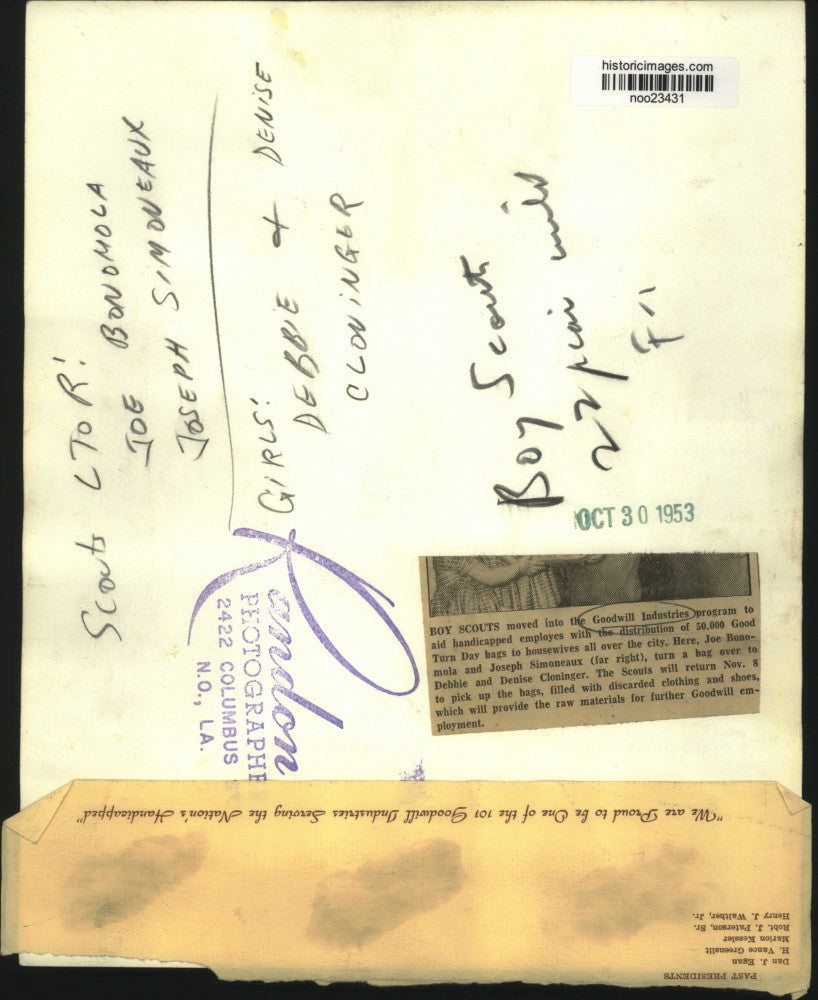 historicimages.com
noo23431
Scouts L TO R:
JOE BONOMOLA
JOSEPH SIMONEAUX
GIRLS:
DEBBIE + DENISE
CLONINGER
Boy Scouts
F-11
OCT 30 1953
PHOTOGRAPHE
2422 COLUMBUS
N.O., LA.
BOY SCOUTS moved into the Goodwill Industries program to
aid handicapped employes with the distribution of 50,000 Good
Turn Day bags to housewives all over the city. Here, Joe Bono-
mola and Joseph Simoneaux (far right), turn a bag over to
Debbie and Denise Cloninger. The Scouts will return Nov. 8
to pick up the bags, filled with discarded clothing and shoes,
which will provide the raw materials for further Goodwill em-
ployment.
"We are Proud to be One of the 101 Goodwill Industries Serving the Nation's Handicapped"
PAST PRESIDENTS
Dan J. Egan
H. Vance Greenslit
Marion Kessler
Robt. J. Paterson, Sr.
Henry J. Walther, Jr.